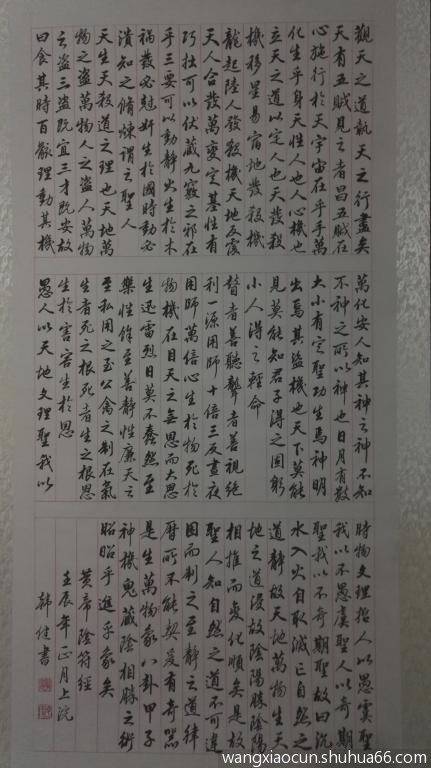 觀天之道執天之行盡矣
天有五賊見之者昌五賊在
心施行於天宇宙在乎手萬
化生乎身天性人也人心機也
立天之道以定人也天發殺
機移星易宿地發殺機
龍起陸人發殺機天地反覆
天人合發萬變定基性有
巧拙可以伏藏九竅之邪在
乎三要可以動靜火生於木
禍發必尅奸生於國時動必
潰知之脩煉謂之聖人
天生天殺道之理也天地萬
物之盜萬物人之盜人萬物
之盜三盜既宜三才既安故
曰食其時百骸理動其機
萬化安人知其神之神不知
不神之所以神也日月有數
大小有定聖功生焉神明
出焉其盜機也天下莫能
見莫能知君子得之固躬
小人得之輕命
瞽者善聽聾者善視絕
利一源用師十倍三反晝夜
用師萬倍心生於物死於
物機在目天之無恩而大恩
生迅雷烈日莫不蠢然至
樂性餘至善靜性廉天之
至私用之至公禽之制在氣
生者死之根死者生之根恩
生於害害生於恩
愚人以天地文理聖我以
時物文理哲人以愚虞聖
我以不愚虞聖人以奇期
聖我以不奇期聖故曰沉
水入火自取滅亡自然之
道靜故天地萬物生天
地之道浸故陰陽勝陰陽
相推而變化順矣是故
聖人知自然之道不可違
因而制之至靜之道律
曆所不能契爰有奇器
是生萬物象八卦甲子
神機鬼藏陰相勝之術
昭昭乎進乎象矣
黃帝陰符經
壬辰年正月上浣
韓健書
wangxiaocun.shuhua66.com